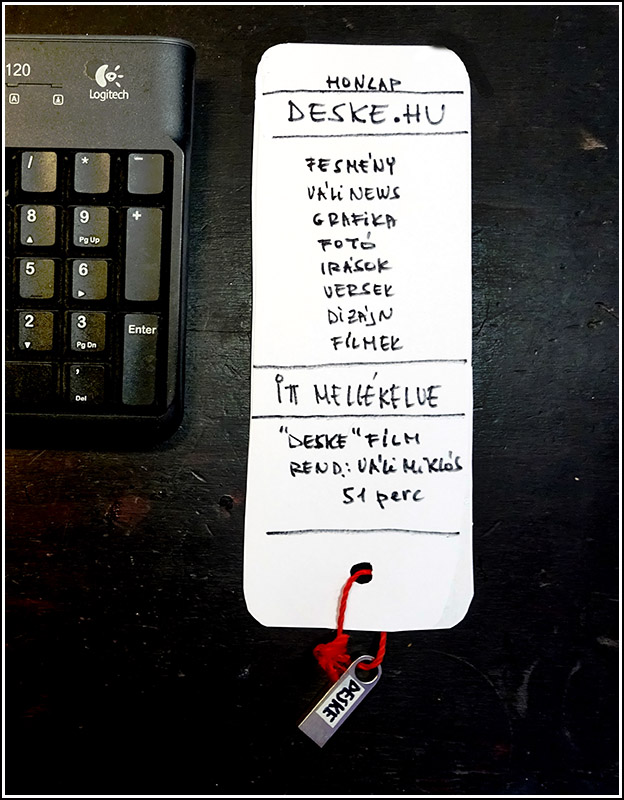 120
Logitech
/
*
-
8
9
Pg Up
+
5
6
2
3
Pg Dn
Enter
,
Del
HONLAP
DESKE.HU
FESMÉNY
VÁLi NEWS
GRAFiKA
FOTÓ
IRÁSOK
VERSEK
DiZÁJN
FiLMEK
iTT MELLÉKELVE
"DESKE" FiLM
REND: VÁLi MiKLÓS
51 perc
DESKE